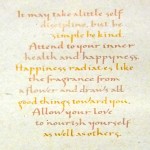 It may take a little self
discipline, but be
simple be kind.
Attend to your inner
health and happyness
Happiness radiates like
the fragrance from
a flower and draws all
good things toward you.
Allow your love
to nourish yourself
as well as others.